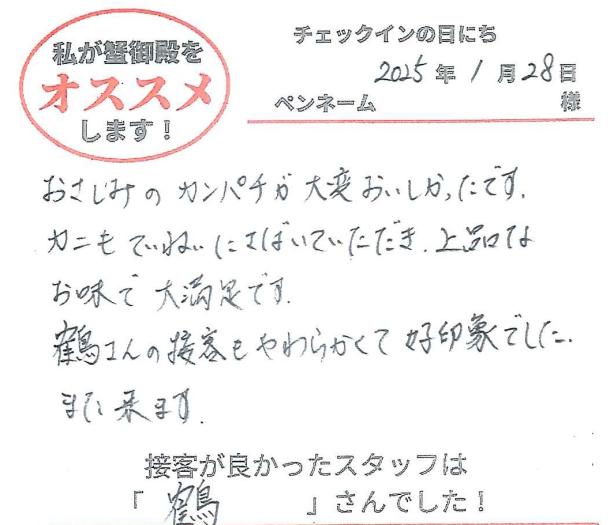 私が蟹御殿を
オススメ
します!
チェックインの日にち
2025年1月28日
ペンネーム 様
おさしみのカンパチが大変おいしかったです。
カニもていねいにさばいていただき、上品な
お味で大満足です。
鶴さんの接客もやわらかくて好印象でした。
また来ます。
接客が良かったスタッフは
「鶴 」さんでした!